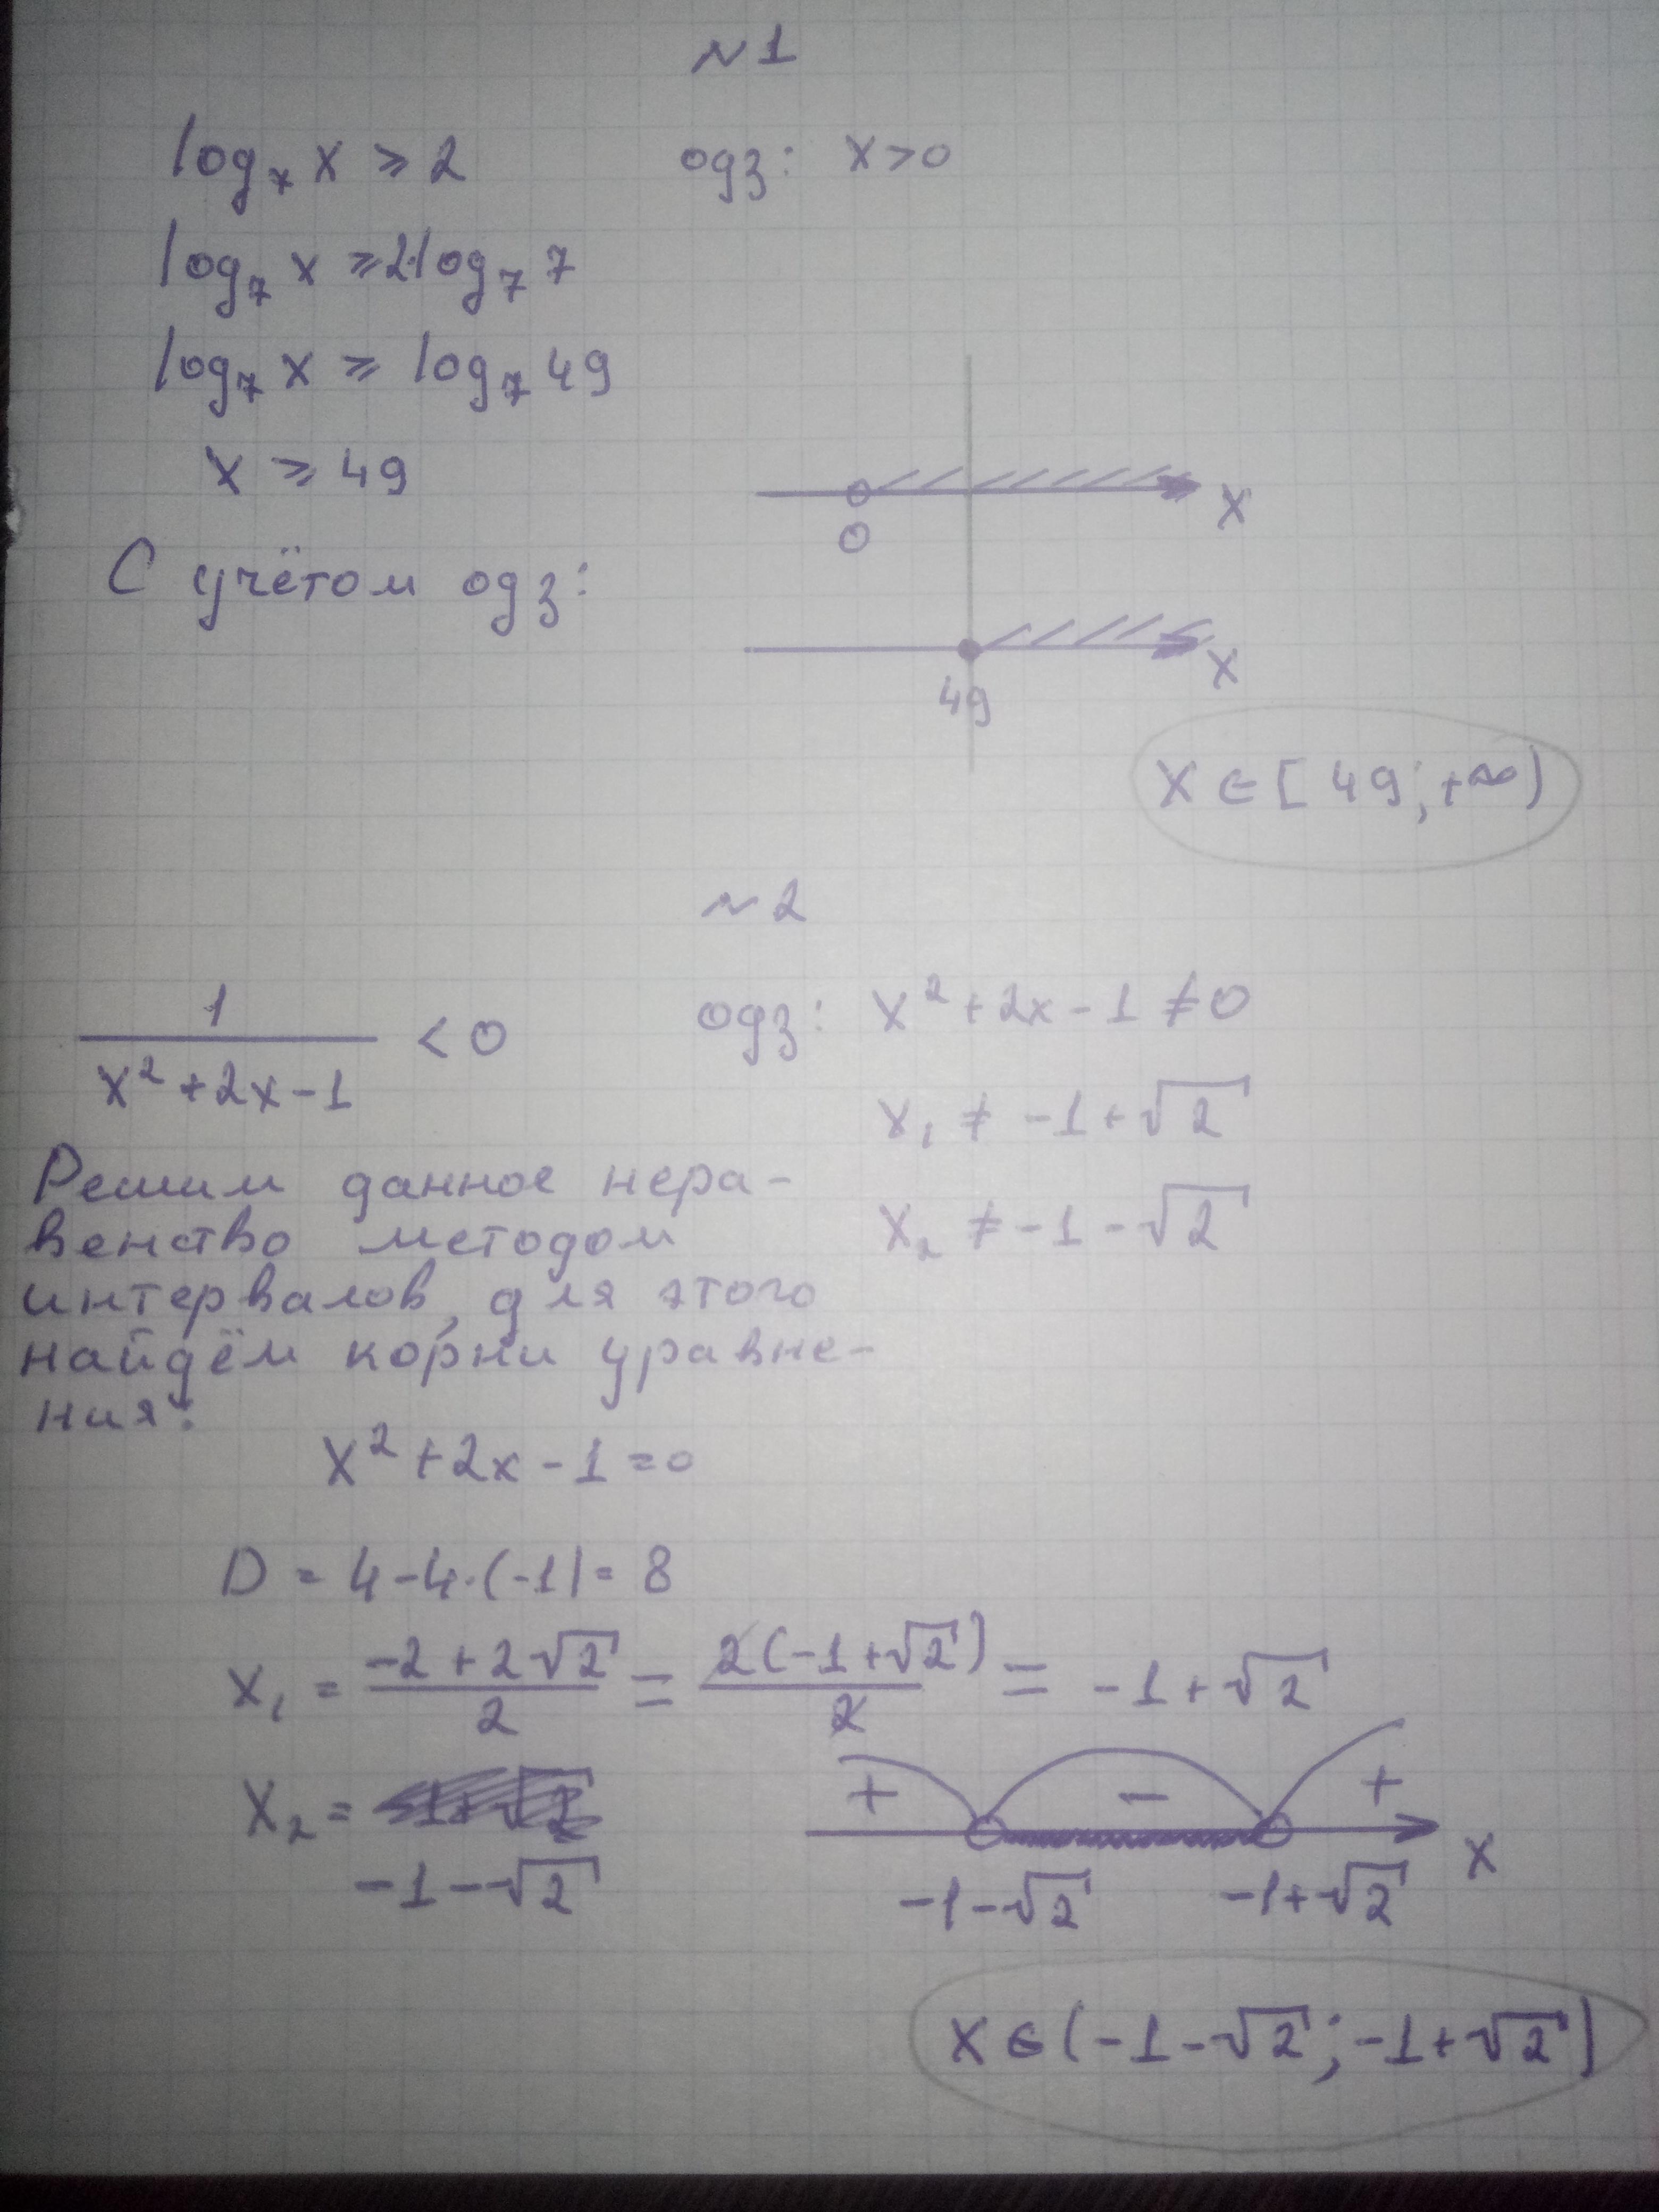 №1
log₇ x ⩾ 2 одз: x>0
log₇ x ⩾ 2·log₇ 7
log₇ x ⩾ log₇ 49
x ⩾ 49
x
0
С учётом одз:
x
49
x ∈ [49; +∞)
№2
1/(x²+2x-1) < 0 одз: x²+2x-1 ≠ 0
x₁ ≠ -1+√2
x₂ ≠ -1-√2
Решим данное нера-
венство методом
интервалов, для этого
найдём корни уравне-
ния:
x²+2x-1=0
D = 4-4·(-1) = 8
x₁ = (-2+2√2)/2 = 2(-1+√2)/2 = -1+√2
x₂ =
-1-√2
+ - +
x
-1-√2 -1+√2
x ∈ (-1-√2; -1+√2)